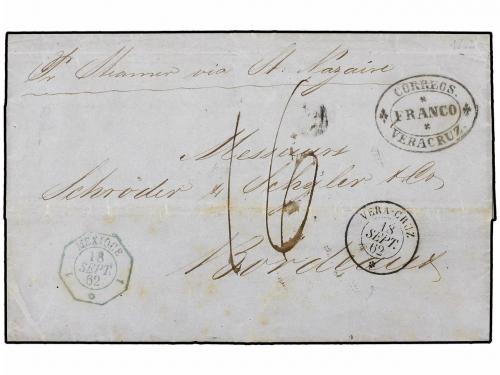 1862
Pr Steamer via St. Nazaire
CORREOS.
FRANCO
VERACRUZ.
Messieurs
Schröder & Schÿler & Co
16
Bordeaux
VERA-CRUZ
18
SEPT.
62
MEXIQUE
18
SEPT.
62
1 1